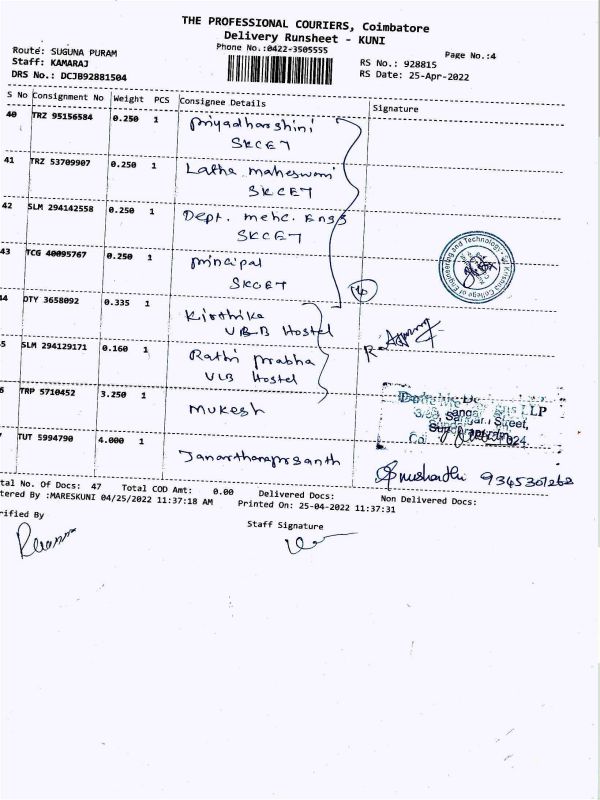 THE PROFESSIONAL COURIERS, Coimbatore
Delivery Runsheet - KUNI
Phone No.:0422-3505555
Page No.:4
Route: SUGUNA PURAM
Staff: KAMARAJ
DRS No.: DCJB92881504
RS No.: 928815
RS Date: 25-Apr-2022
S No Consignment No Weight PCS Consignee Details Signature
40 TRZ 95156584 0.250 1 Priyadharshini
SKCET
41 TRZ 53709907 0.250 1 Latha maheswari
SKCET
42 SLM 294142558 0.250 1 Dept. mehc. Engg
SKCET
43 TCG 40095767 0.250 1 principal
SKCET
44 DTY 3658092 0.335 1 Kirthika
VLB Hostel
5 SLM 294129171 0.160 1 Rathi prabha
VLB Hostel
6 TRP 5710452 3.250 1 Mukesh
7 TUT 5994790 4.000 1 Janarthanaprasanth
9345301268
tal No. Of Docs: 47 Total COD Amt: 0.00 Delivered Docs: Non Delivered Docs:
tered By :MARESKUNI 04/25/2022 11:37:18 AM Printed On: 25-04-2022 11:37:31
rified By
Staff Signature